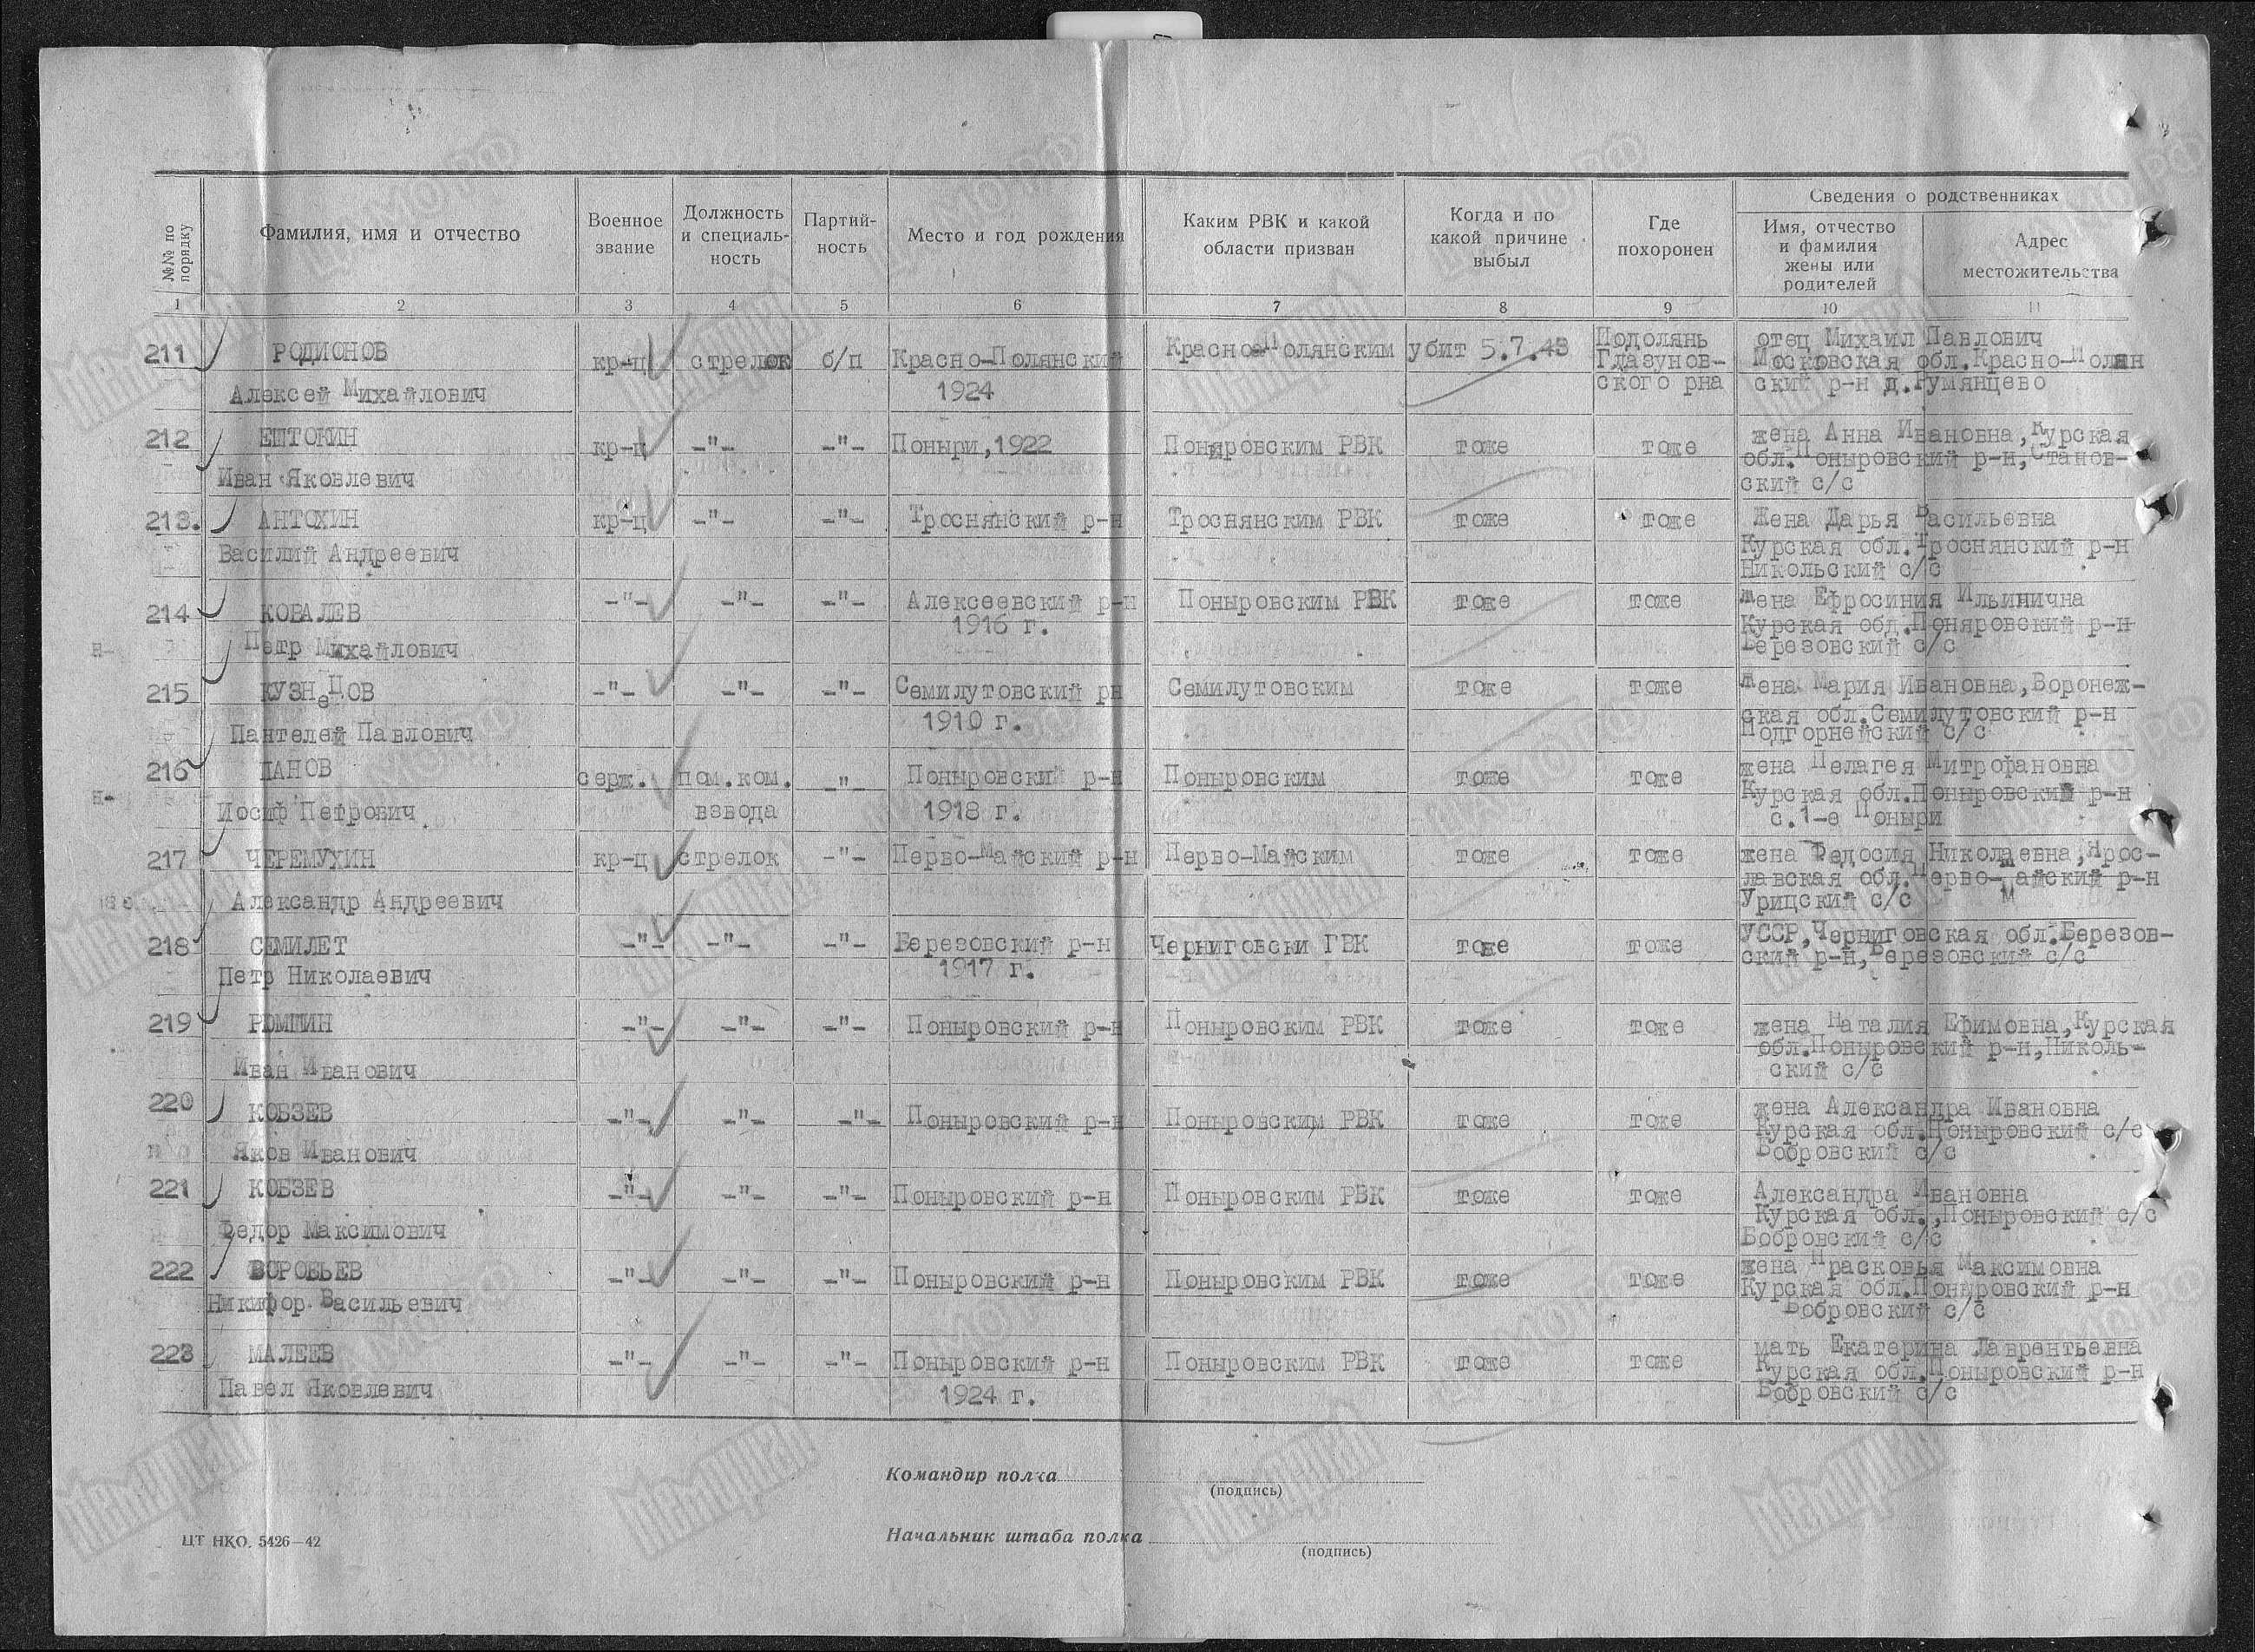 №№ по порядку
Фамилия, имя и отчество
Военное звание
Должность и специаль-ность
Партий-ность
Место и год рождения
Каким РВК и какой области призван
Когда и по какой причине выбыл
Где похоронен
Сведения о родственниках
Имя, отчество и фамилия жены или родителей
Адрес местожительства
1 2 3 4 5 6 7 8 9 10 11
211 РОДИОНОВ кр-ц стрелок б/п Красно-Полянский Красно-Полянским убит 5.7.43 Подолянь отец Михаил Павлович
Глазунов- Московская обл.Красно-Полян
Алексей Михайлович 1924 ского рна ский р-н д.Румянцево
212 ЕШТОКИН кр-ц -"- -"- Поныри,1922 Поныровским РВК тоже тоже жена Анна Ивановна,Курская
обл.Поныровский р-н,Станов-
Иван Яковлевич ский с/с
213. АНТОХИН кр-ц -"- -"- Троснянский р-н Троснянским РВК тоже тоже Жена Дарья Васильевна
Василий Андреевич Курская обл.Троснянский р-н
Никольский с/с
214 КОВАЛЕВ -"- -"- -"- Алексеевский р-н Поныровским РВК тоже тоже Жена Ефросиния Ильинична
1916 г. Курская обл.Поняровский р-н
Петр Михайлович Березовский с/с
215 КУЗНеЦОВ -"- -"- -"- Семилутовский рн Семилутовским тоже тоже Жена Мария Ивановна,Воронеж-
1910 г. ская обл.Семилутовский р-н
Пантелей Павлович Подгорнейский с/с
216 ПАНОВ серж. пом.ком. -"- Поныровский р-н Поныровским тоже тоже жена Пелагея Митрофановна
Курская обл.Поныровский р-н
Иосиф Петрович взвода 1918 г. с.1-е Поныри
217 ЧЕРЕМУХИН кр-ц стрелок -"- Перво-Майский р-н Перво-Майским тоже тоже жена Федосия Николаевна,Ярос-
лавская обл.Перво-Майский р-н
Александр Андреевич Урицский с/с М
218 СЕМИЛЕТ -"- -"- -"- Березовский р-н Черниговски ГВК тоже тоже УССР,Черниговская обл.Березов-
Петр Николаевич 1917 г. ский р-н,Березовский с/с
219 РОМШИН -"- -"- -"- Поныровский р-н Поныровским РВК тоже тоже жена Наталия Ефимовна,Курская
обл.Поныровский р-н,Николь-
Иван Иванович ский с/с
220 КОБЗЕВ -"- -"- -"- Поныровский р-н Поныровским РВК тоже тоже жена Александра Ивановна
Курская обл.Поныровский с/с
Яков Иванович Бобровский с/с
221 КОБЗЕВ -"- -"- -"- Поныровский р-н Поныровским РВК тоже тоже Александра Ивановна
Курская обл.,Поныровский с/с
Федор Максимович Бобровский с/с
222 ВОРОБЬЕВ -"- -"- -"- Поныровский р-н Поныровским РВК тоже тоже жена Прасковья Максимовна
Курская обл.Поныровский р-н
Никифор Васильевич Бобровский с/с
223 МАЛЕЕВ -"- -"- -"- Поныровский р-н Поныровским РВК тоже тоже мать Екатерина Лаврентьевна
Курская обл.Поныровский р-н
Павел Яковлевич 1924 г. Бобровский с/с
Командир полка
(подпись)
ЦТ НКО. 5426—42
Начальник штаба полка
(подпись)